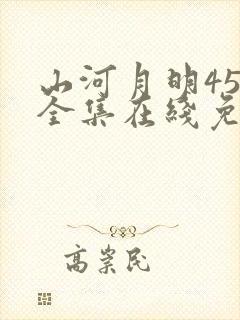 山河月明45
全集在线免
高崇民